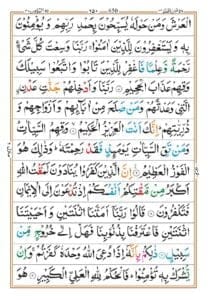 الْعَرْشَ وَمَنْ حَوْلَهٗ يُسَبِّحُوْنَ بِحَمْدِ رَبِّهِمْ وَ يُؤْمِنُوْنَ
بِهٖ وَ يَسْتَغْفِرُوْنَ لِلَّذِيْنَ اٰمَنُوْا ۚ رَبَّنَا وَسِعْتَ كُلَّ شَيْءٍ
رَّحْمَةً وَّعِلْمًا فَاغْفِرْ لِلَّذِيْنَ تَابُوْا وَ اتَّبَعُوْا سَبِيْلَكَ
وَقِهِمْ عَذَابَ الْجَحِيْمِ ۝ رَبَّنَا وَ اَدْخِلْهُمْ جَنّٰتِ عَدْنِ
وَمَنْ صَلَحَ مِنْ اٰبَآىِٕهِمْ وَ اَزْوَاجِهِمْ وَ
ذُرِّيّٰتِهِمْ ؕ اِنَّكَ اَنْتَ الْعَزِيْزُ الْحَكِيْمُ ۝ وَقِهِمُ السَّيِّاٰتِ ؕ
وَمَنْ تَقِ السَّيِّاٰتِ يَوْمَىِٕذٍ فَقَدْ رَحِمْتَهٗ ؕ وَذٰلِكَ هُوَ الْفَوْزُ
الْعَظِيْمُ ۝ اِنَّ الَّذِيْنَ كَفَرُوْا يُنَادَوْنَ لَمَقْتُ اللّٰهِ
اَكْبَرُ مِنْ مَّقْتِكُمْ اَنْفُسَكُمْ اِذْ تُدْعَوْنَ اِلَى الْاِيْمَانِ
فَتَكْفُرُوْنَ ۝ قَالُوْا رَبَّنَآ اَمَتَّنَا اثْنَتَيْنِ وَ اَحْيَيْتَنَا
اثْنَتَيْنِ فَاعْتَرَفْنَا بِذُنُوْبِنَا فَهَلْ اِلٰى خُرُوْجٍ مِّنْ
سَبِيْلٍ ۝ ذٰلِكُمْ بِاَنَّهٗٓ اِذَا دُعِيَ اللّٰهُ وَحْدَهٗ كَفَرْتُمْ ۚ وَ اِنْ
يُّشْرَكْ بِهٖ تُؤْمِنُوْا ؕ فَالْحُكْمُ لِلّٰهِ الْعَلِيِّ الْكَبِيْرِ ۝ هُوَ